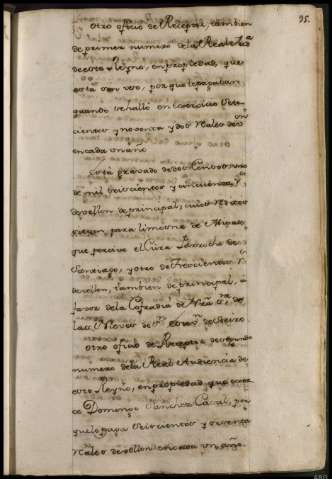 95.
otro oficio de Receptor, tambien
de primer numero de la Real Aud.ª
de este Reyno, en propiedad, que
está sin uso, por que le pagaban
quando se hallò en exercicio Seis
cientos y noventa y dos Reales de v.on
en cada un año
Está gravado de dos Censos: uno
de mil Seiscientos y cinquenta R.s
de vellon de principal, cuios
para limosna de Misas,
que percive el Cura Parrocho de
Santiago, y otro de Trescientos R.s
de vellon, tambien de principal, a
favor de la Cofradia de Nra. S.ra de
las Nieves de
otro oficio de Receptor de segundo
numero de la Real Audiencia de
este Reyno, en propiedad, que exerce
Domingo Sanchez por
que le paga Seiscientos y sesenta
Reales de vellon en cada un año.